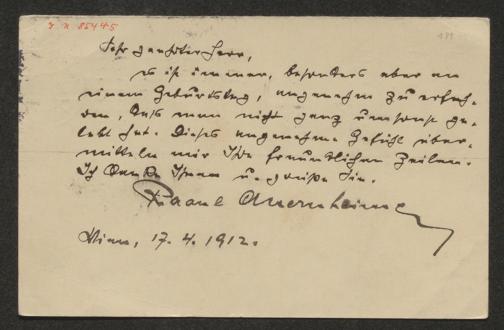 I. N. 85445
Sehr geehrter Herr,
es ist immer, besonders aber an
einem Geburtstag, angenehm zu erfah-
ren, daß man nicht ganz umsonst ge-
lebt hat. Dieses angenehme Gefühl über-
mitteln mir Ihre freundlichen Zeilen.
Ich danke Ihnen u. grüße Sie.
Raoul Auernheimer
Wien, 17. 4. 1912.